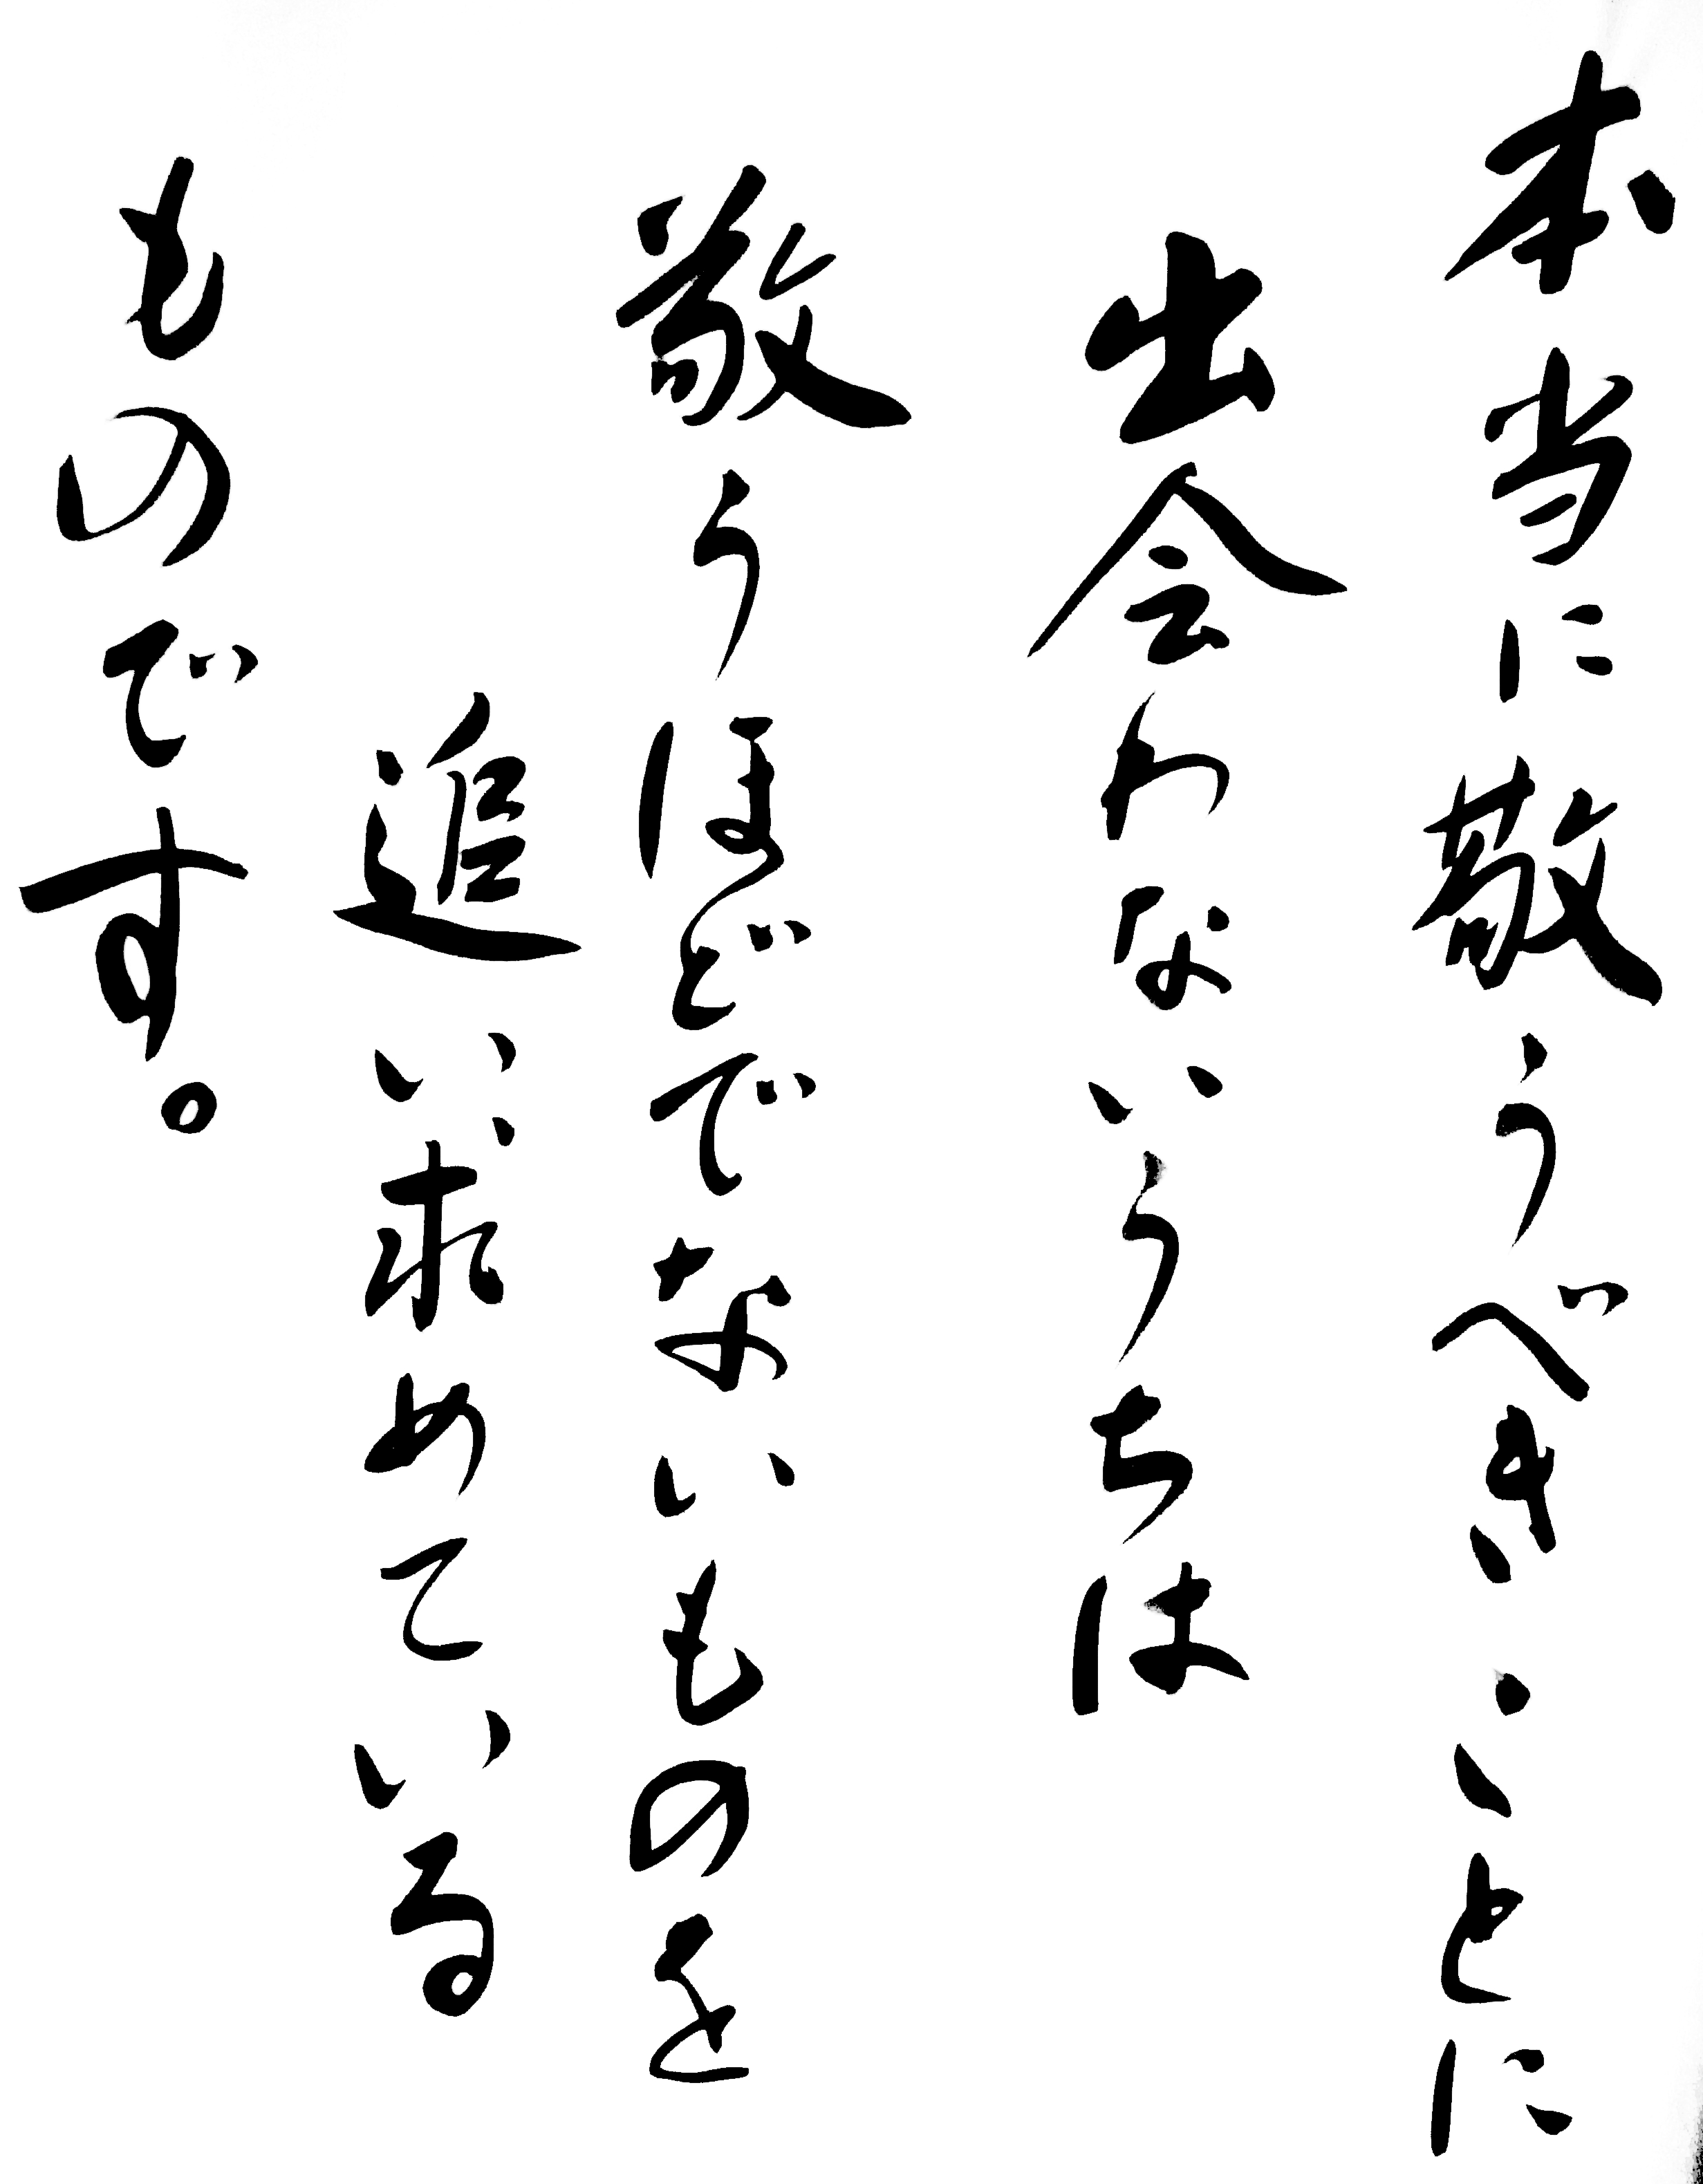 本当に敬うべきことに
出会わないうちは
敬うほどでないものを
追い求めている
ものです。